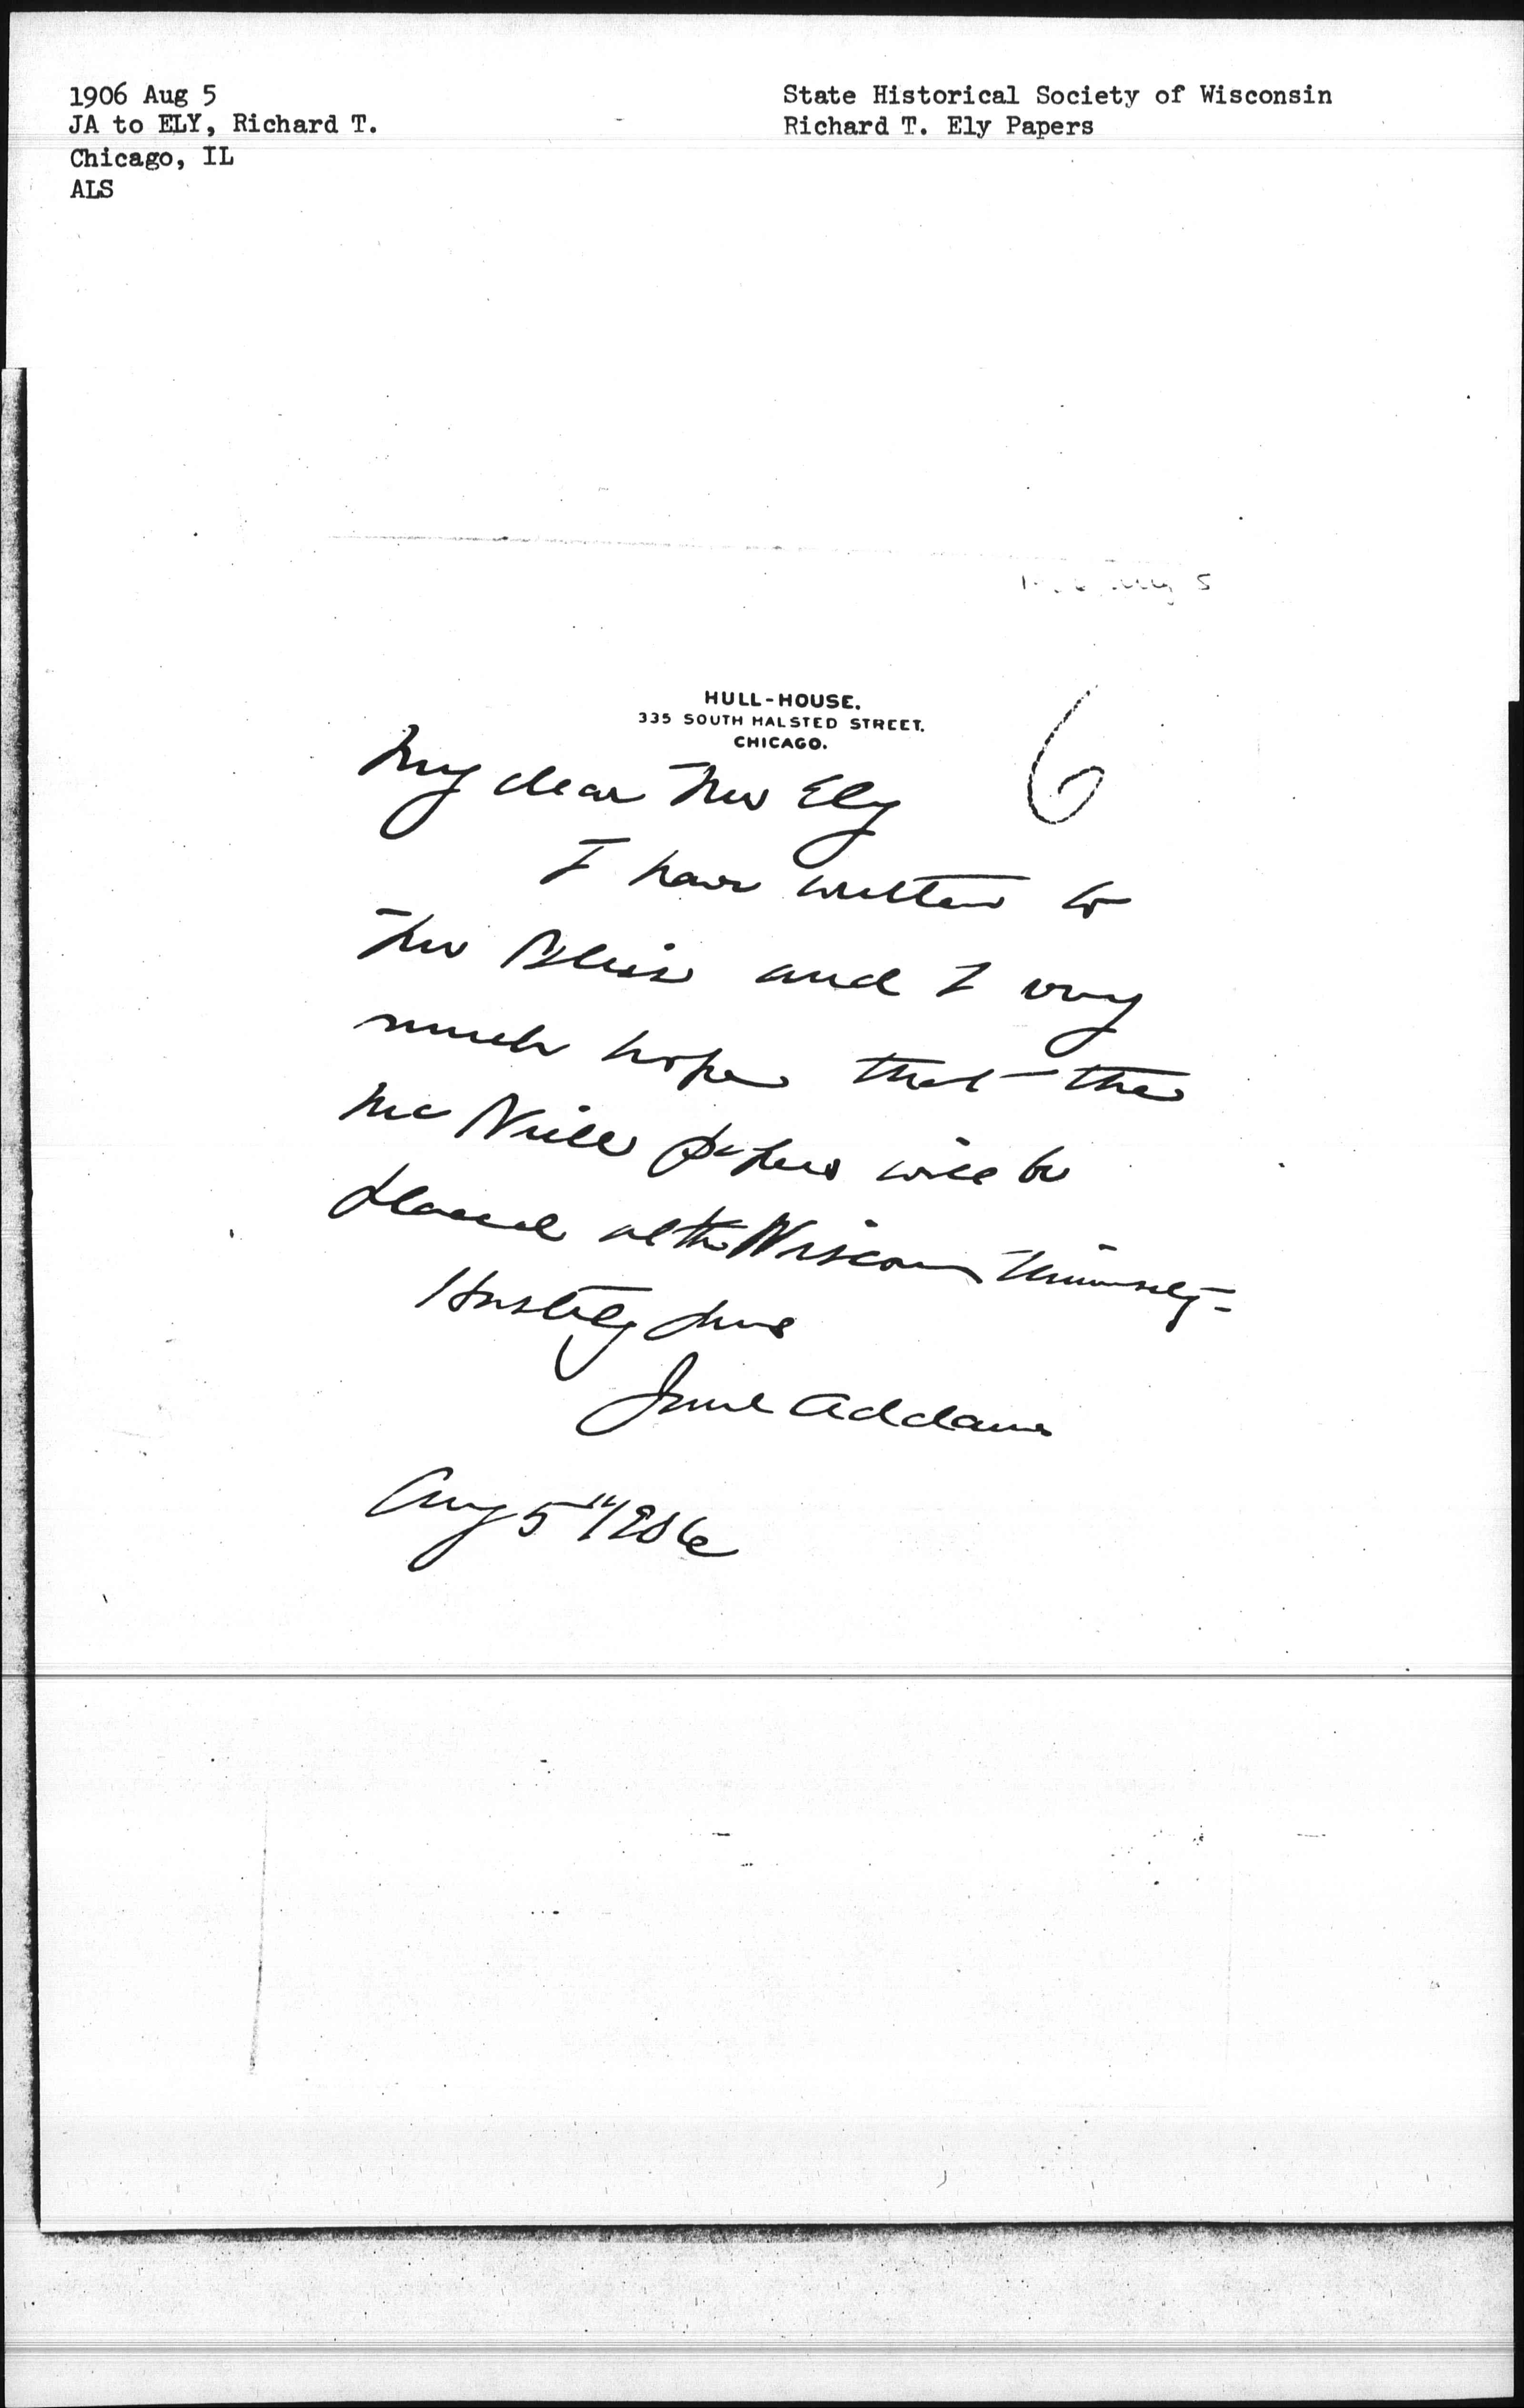 1906 Aug 5
JA to ELY, Richard T.
Chicago, IL
ALS
State Historical Society of Wisconsin
Richard T. Ely Papers
HULL-HOUSE.
335 SOUTH HALSTED STREET.
CHICAGO.
6
My dear Mr Ely
I have written to
Mr Bliss and I very
much hope that the
Mc Neill papers will be
placed at the Wisconsin University -
Hastily yours
Jane Addams
Aug 5" 1906